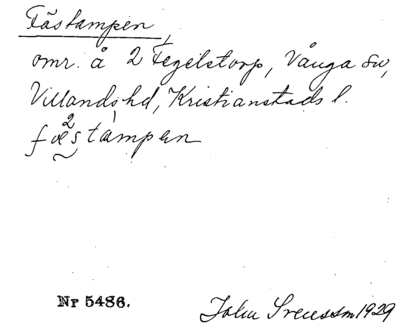 Fästampen,
omr. å 2 Tegelstorp, Vånga sn,
Villands hd, Kristianstads l.
fæ²stàmpen
Nr 5486.
John Svensson 1929